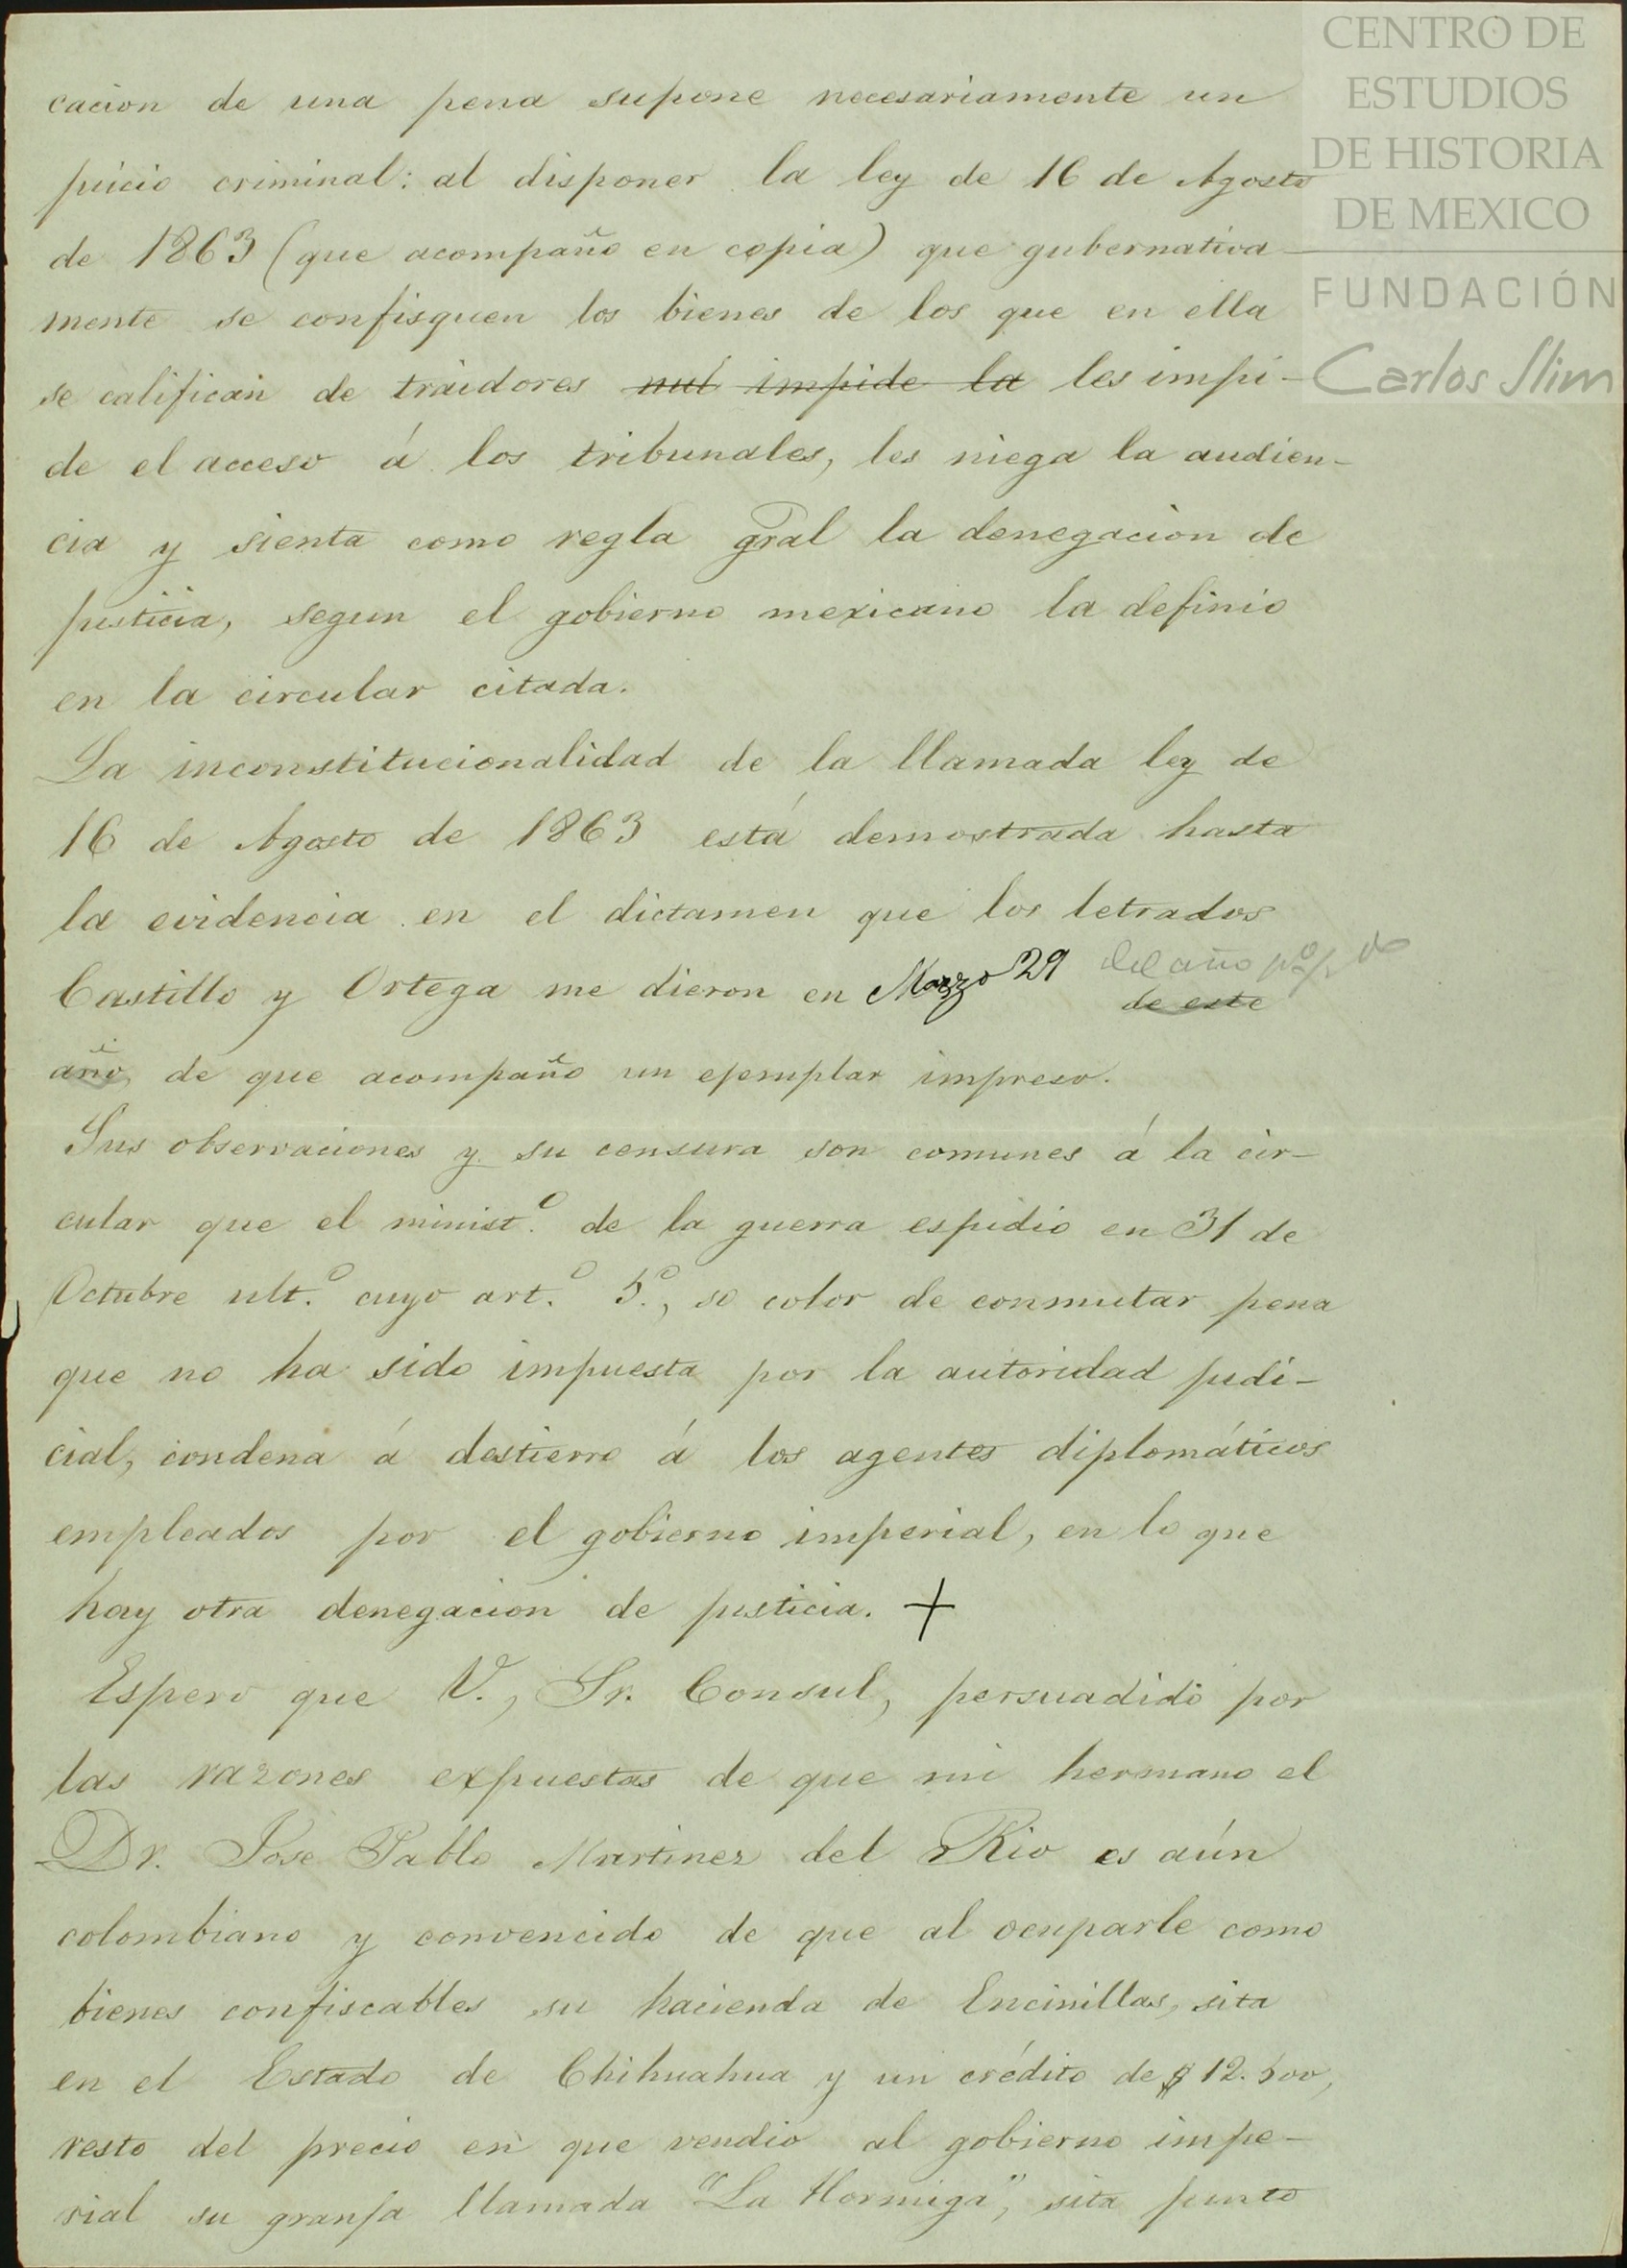 CENTRO DE
ESTUDIOS
DE HISTORIA
DE MEXICO
FUNDACIÓN
Carlos Slim
cacion de una pena supone necesariamente un
juicio criminal: al disponer la ley de 16 de Agosto
de 1863 (que acompaño en copia) que gubernativa-
mente se confisquen los bienes de los que en ella
se califican de traidores impide la les impi-
de el acceso á los tribunales, les niega la audien-
cia y sienta como regla gral la denegacion de
justicia, segun el gobierno mexicano la definio
en la circular citada.
La inconstitucionalidad de la llamada ley de
16 de Agosto de 1863 está demostrada hasta
la evidencia en el dictamen que los letrados
Castillo y Ortega me dieron en Marzo 29 del año
de este
año, de que acompaño un ejemplar impreso.
Sus observaciones y su censura son comunes á la cir-
cular que el minist.º de la guerra espidio en 31 de
Octubre ult.º cuyo art.º 5.º, so color de conmutar pena
que no ha sido impuesta por la autoridad judi-
cial, condena á destierro á los agentes diplomáticos
empleados por el gobierno imperial, en lo que
hay otra denegacion de justicia. +
Espero que V., Sr. Consul, persuadido por
las razones expuestas de que mi hermano el
Dr. Jose Pablo Martinez del Rio es aún
colombiano y convencido de que al ocuparle como
bienes confiscables su hacienda de Encinillas, sita
en el Estado de Chihuahua y un crédito de $ 12.500,
resto del precio en que vendio al gobierno impe-
rial su granja llamada "La Hormiga", sita junto